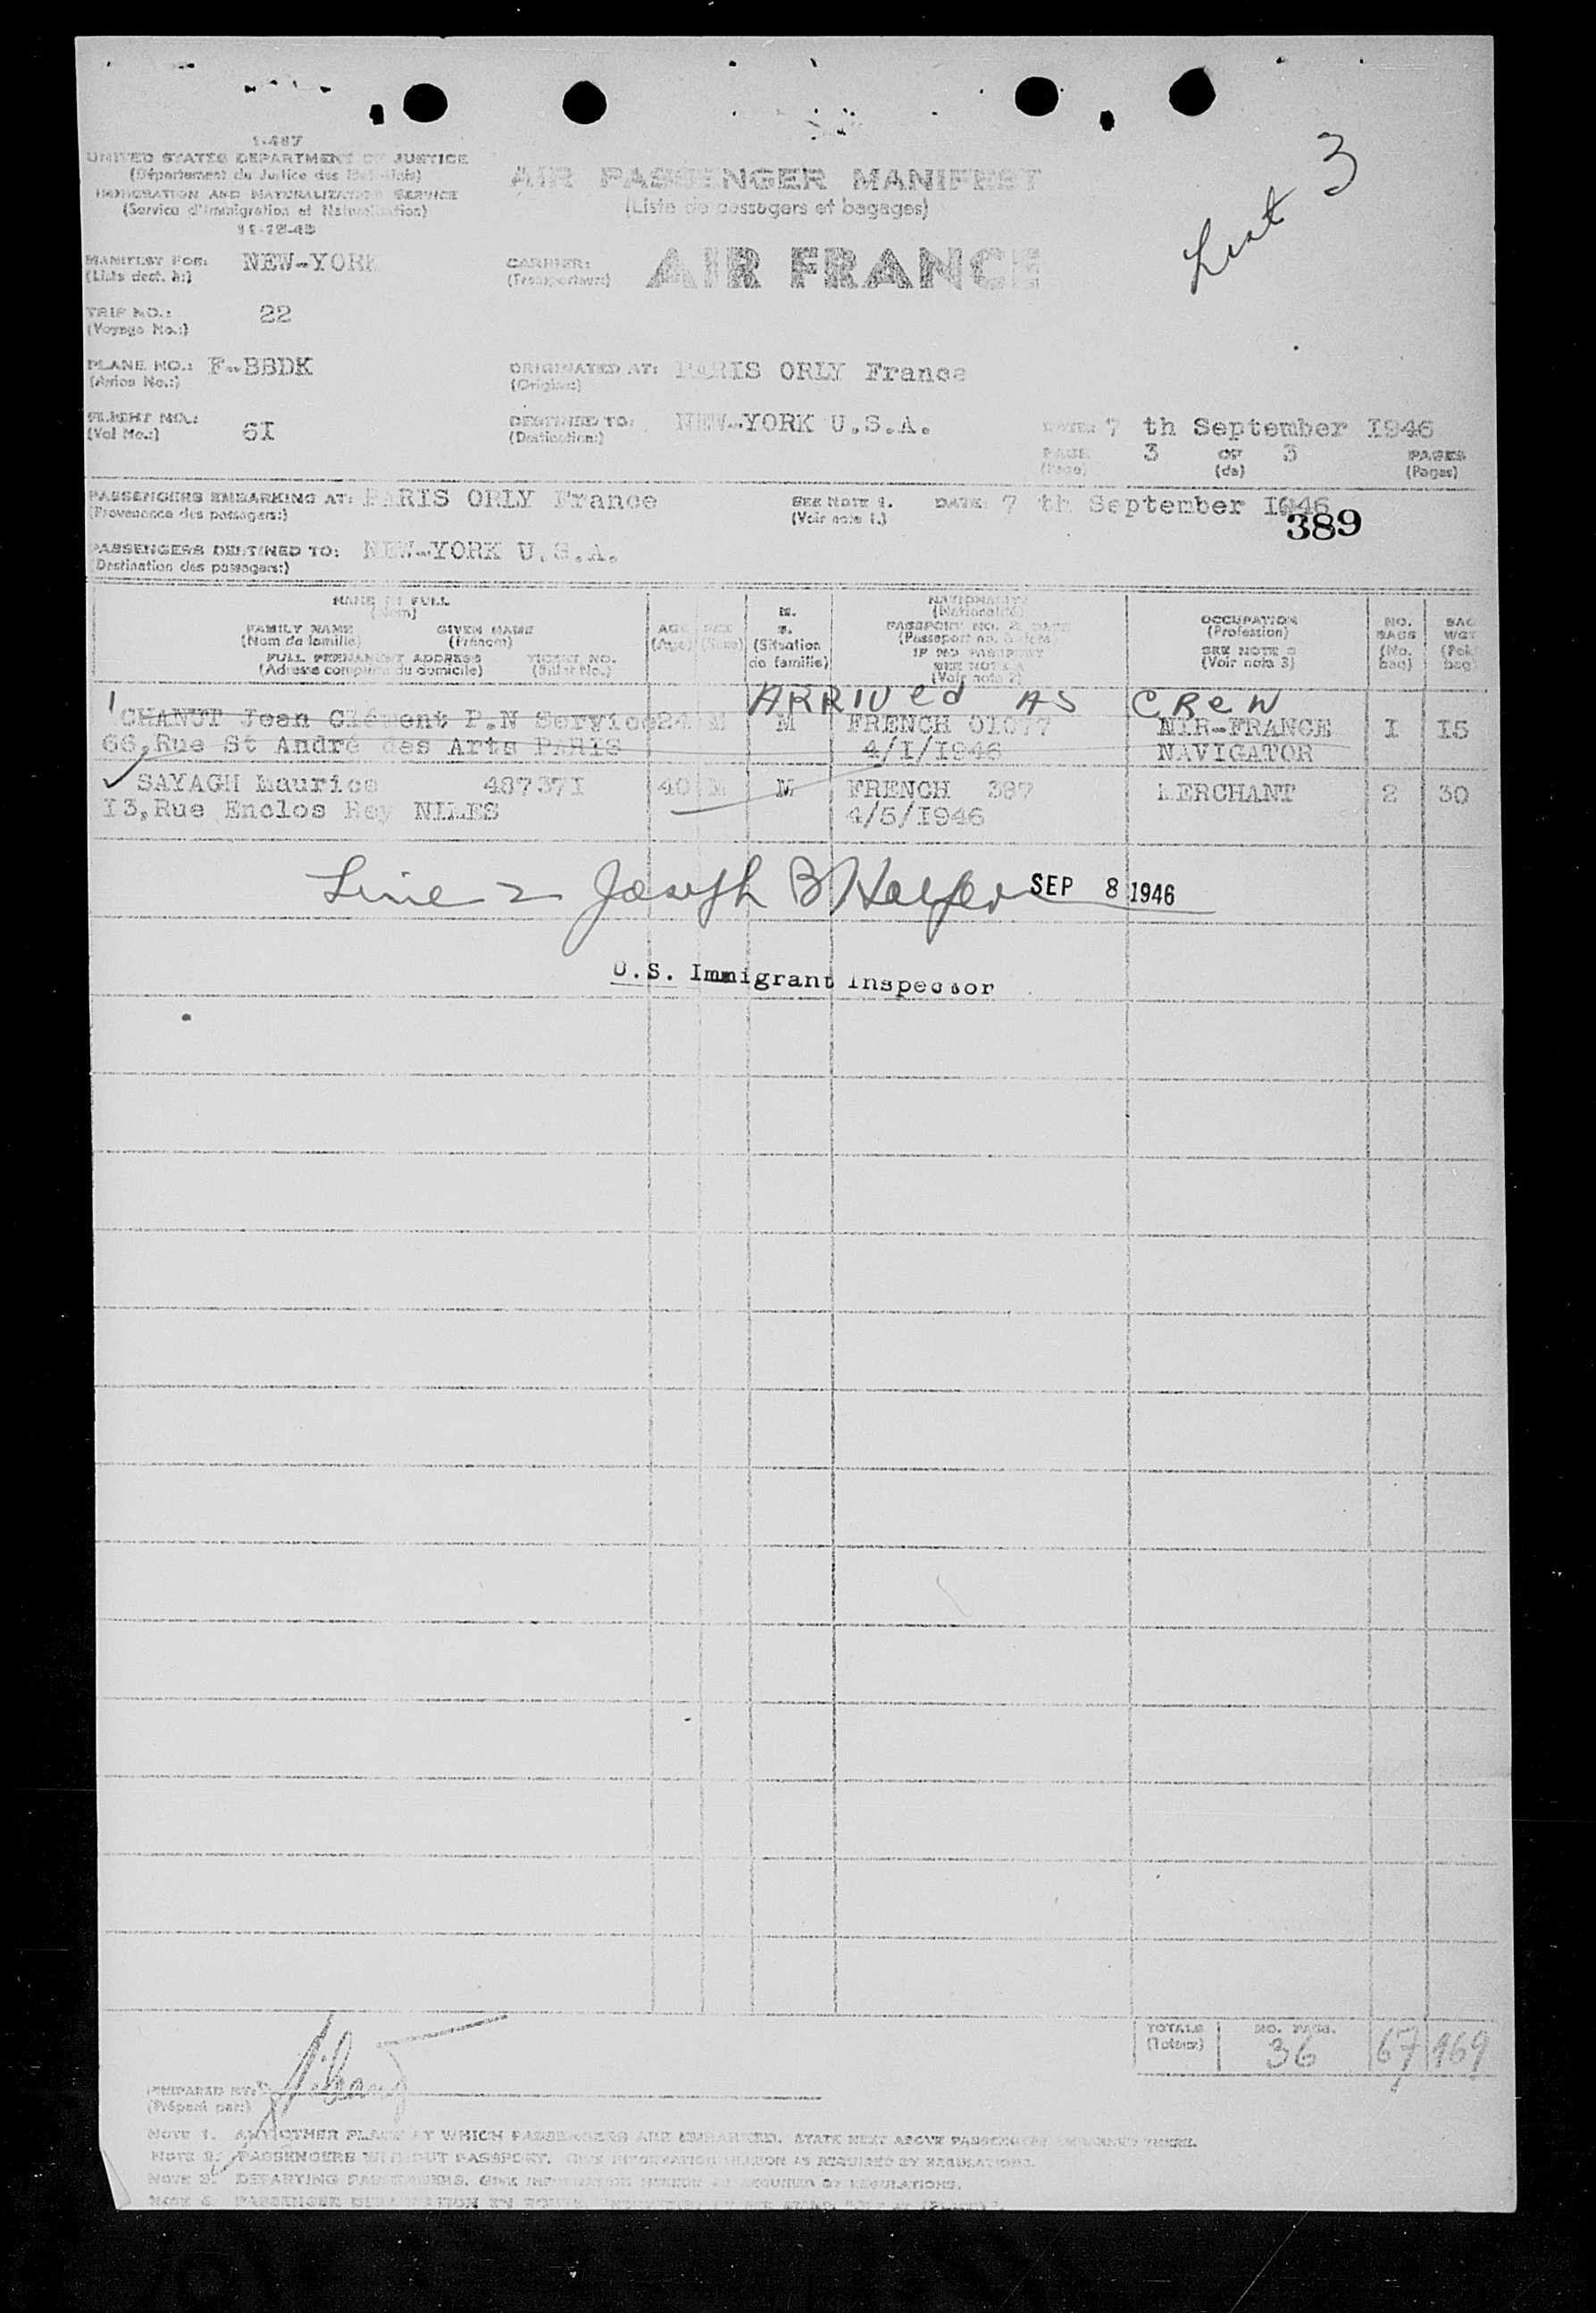 I-467
UNITED STATES DEPARTMENT OF JUSTICE
(Département du Justice des
IMMIGRATION AND NATURALIZATION SERVICE
(Service d'Immigration et Naturalisation)
11-12-43
AIR PASSENGER MANIFEST
(Liste de passagers et bagages)
List 3
MANIFEST FOR: NEW-YORK
(Liste dest. à:)
CARRIER: AIR FRANCE
(Transporteurs)
TRIP NO.: 22
(Voyage No.:)
PLANE NO.: F-BBDK
(Avion No.:)
ORIGINATED AT: PARIS ORLY France
(Origine:)
FLIGHT NO.: 6I
(Vol No.:)
DESTINED TO: NEW-YORK U.S.A.
(Destination:)
DATE: 7 th September I946
PAGE 3 OF 3 PAGES
(Page) (de) (Pages)
PASSENGERS EMBARKING AT: PARIS ORLY France
(Provenance des passagers:)
SEE NOTE 1. DATE: 7 th September I946
(Voir note 1.)
389
PASSENGERS DESTINED TO: NEW-YORK U.S.A.
(Destination des passagers:)
NAME IN FULL
(Nom)
FAMILY NAME GIVEN NAME
(Nom de famille) (Prénom)
FULL PERMANENT ADDRESS TICKET NO.
(Adresse complète du domicile) (Billet No.)
AGE
(Age)
SEX
(Sexe)
M.
S.
(Situation
de famille)
NATIONALITY
(Nationalité)
PASSPORT NO. & DATE
(Passeport no. & date)
IF NO PASSPORT
SEE NOTE 2
(Voir nota 2)
OCCUPATION
(Profession)
SEE NOTE 3
(Voir nota 3)
NO.
BAGS
(No.
bag)
BAG
WGT
bag)
ARRIVED AS CREW
1 CHANUT Jean Clément P.N Service 24 M M FRENCH 01077 AIR-FRANCE I I5
66,Rue St André des Arts PARIS 4/I/I946 NAVIGATOR
✓ SAYAGH Maurice 48737I 40 M M FRENCH 387 MERCHANT 2 30
I3,Rue Enclos Rey NILES 4/5/I946
Line 2 Joseph B SEP 8 1946
U.S. Immigrant Inspector
TOTALS NO. PASS.
(Totaux) 36 67 469
PREPARED BY:
(Préparé par:)
NOTE 1. ANY OTHER PLACE AT WHICH PASSENGERS ARE EMBARKED. STATE NEXT ABOVE PASSENGERS EMBARKED THERE.
NOTE 2. PASSENGERS WITHOUT PASSPORT. GIVE INFORMATION HEREON AS REQUIRED BY REGULATIONS.
NOTE 3. DEPARTING PASSENGERS. GIVE INFORMATION HEREON AS REQUIRED BY REGULATIONS.